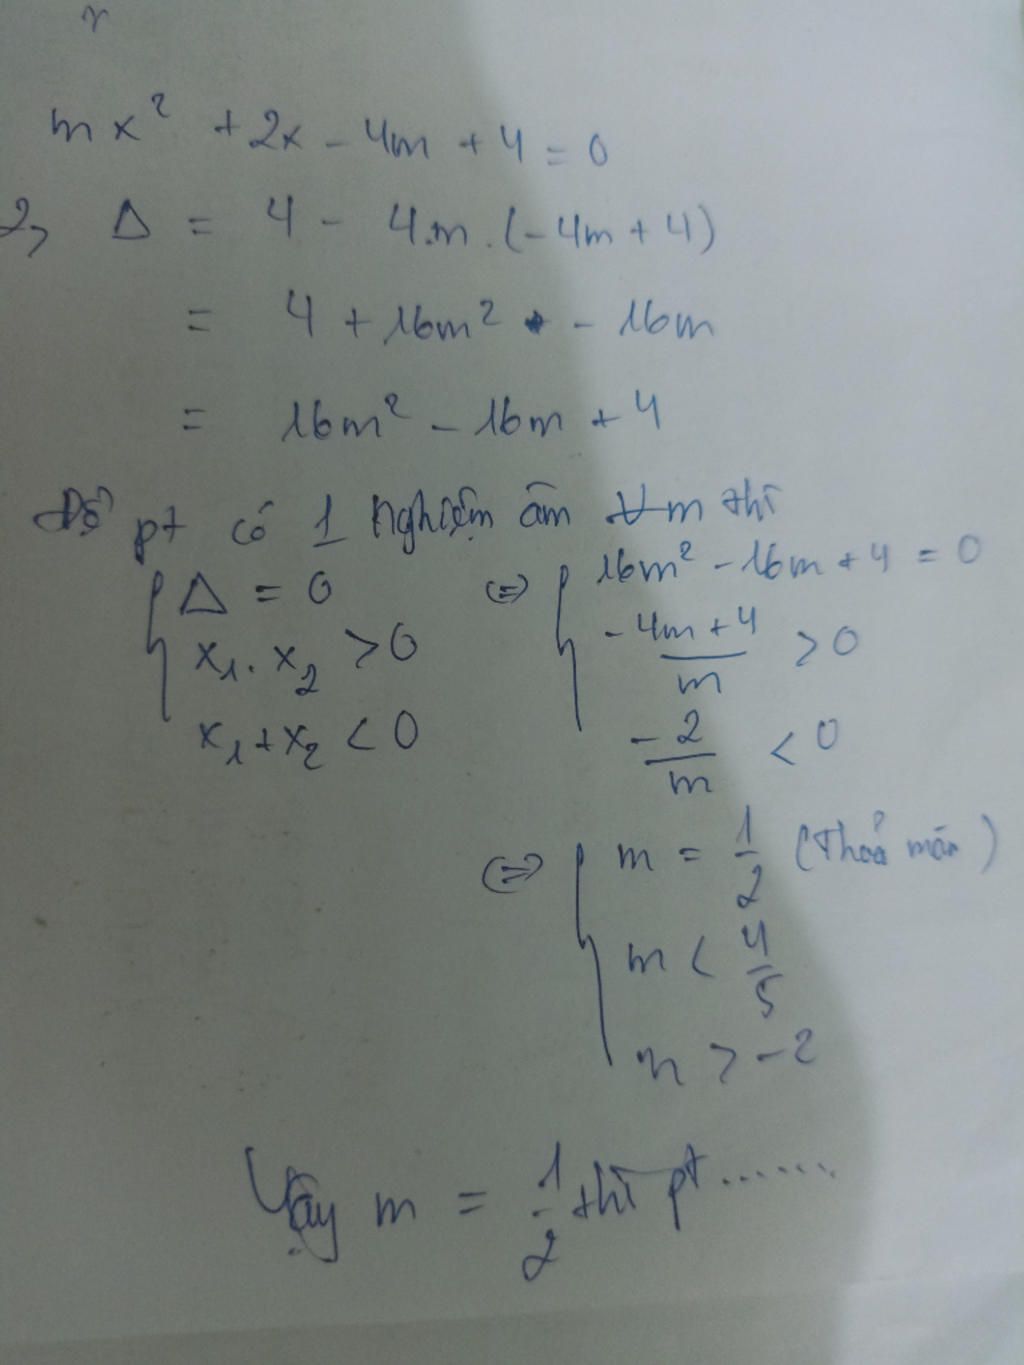 mx² + 2x - 4m + 4 = 0
2, Δ = 4 - 4.m.(-4m + 4)
= 4 + 16m² - 16m
= 16m² - 16m + 4
Để pt có 1 nghiệm âm ∀m thì
{ Δ = 0 ⇔ { 16m² - 16m + 4 = 0
x₁. x₂ > 0 \frac{-4m + 4}{m} > 0
x₁ + x₂ < 0 \frac{-2}{m} < 0
⇔ { m = \frac{1}{2} (thoả mãn)
m < \frac{4}{5}
m > -2
Vậy m = \frac{1}{2} thì pt ......